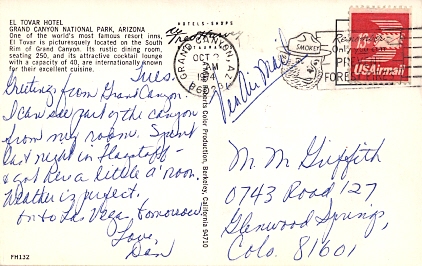 EL TOVAR HOTEL
GRAND CANYON NATIONAL PARK, ARIZONA
One of the world's most famous resort inns,
El Tovar is picturesquely located on the South
Rim of Grand Canyon. Its rustic dining room,
seating 250, and its attractive cocktail lounge
with a capacity of 40, are internationally known
for their excellent cuisine.
Tues.
Greetings from Grand Canyon
I can see part of the canyon
from my room. Spent
last night in Flagstaff -
& got here a little a'noon.
Weather is perfect.
On to Las Vegas tomorrow.
Love,
Dan
FH132
HOTELS-SHOPS
Color Production, Berkeley, California 94710
GRAND CANYON, AZ
OCT
AM
Via Air Mail
SMOKEY
Only you can
FORE
US Airmail
M. M. Griffith
0743 Road 127
Glenwood Springs,
Colo. 81601